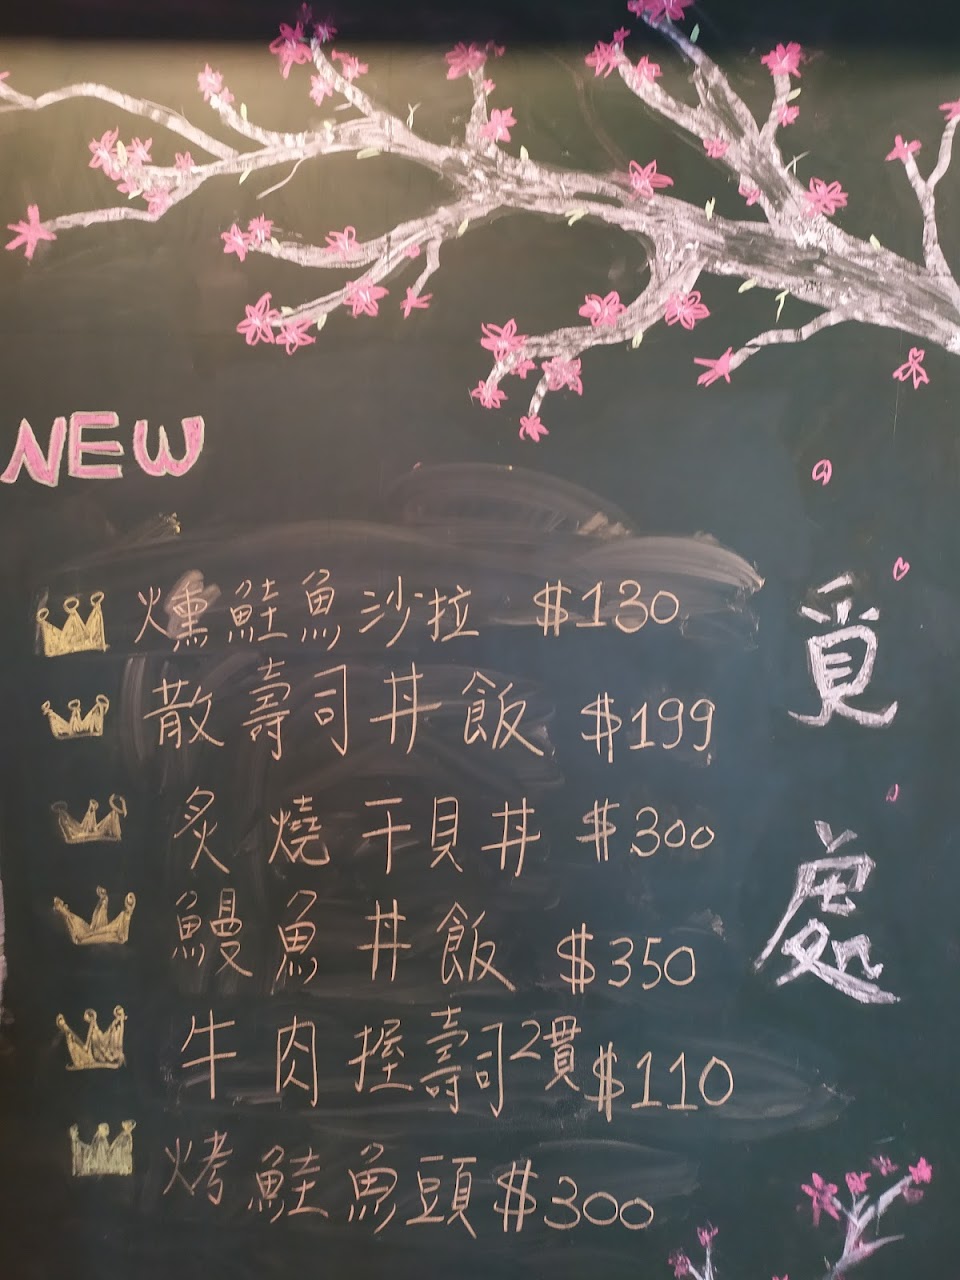 NEW
燻鮭魚沙拉 $130
散壽司丼飯 $199
炙燒干貝丼 $300
鰻魚丼飯 $350
牛肉握壽司2貫 $110
烤鮭魚頭 $300
覓處